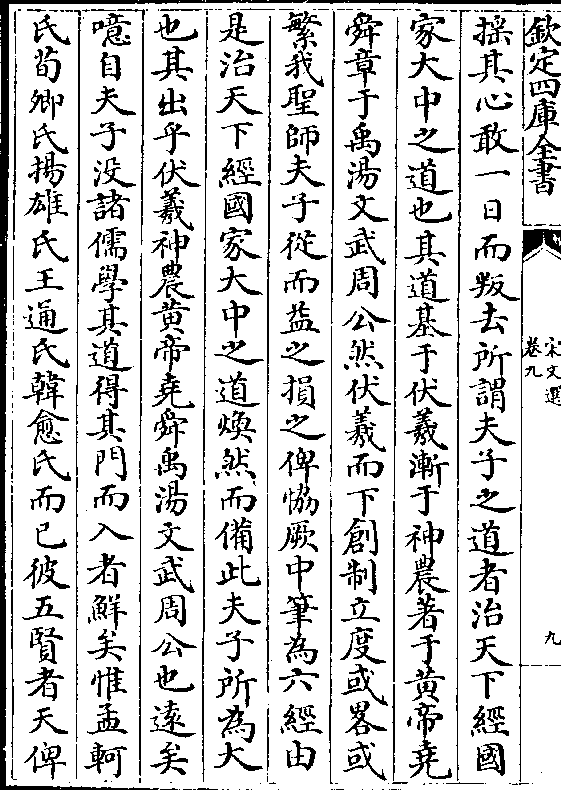 欽定四庫全書
宋文選
卷九
九
揺其心敢一日而叛去所謂夫子之道者治天下經國
家大中之道也其道基于伏羲漸于神農著于黄帝堯
舜章于禹湯文武周公然伏羲而下創制立度或畧或
繁我聖師夫子從而益之損之俾恊厥中筆為六經由
是治天下經國家大中之道煥然而備此夫子所為大
也其出乎伏羲神農黄帝堯舜禹湯文武周公也遠矣
噫自夫子没諸儒學其道得其門而入者鮮矣惟孟軻
氏荀卿氏揚雄氏王通氏韓愈氏而已彼五賢者天俾